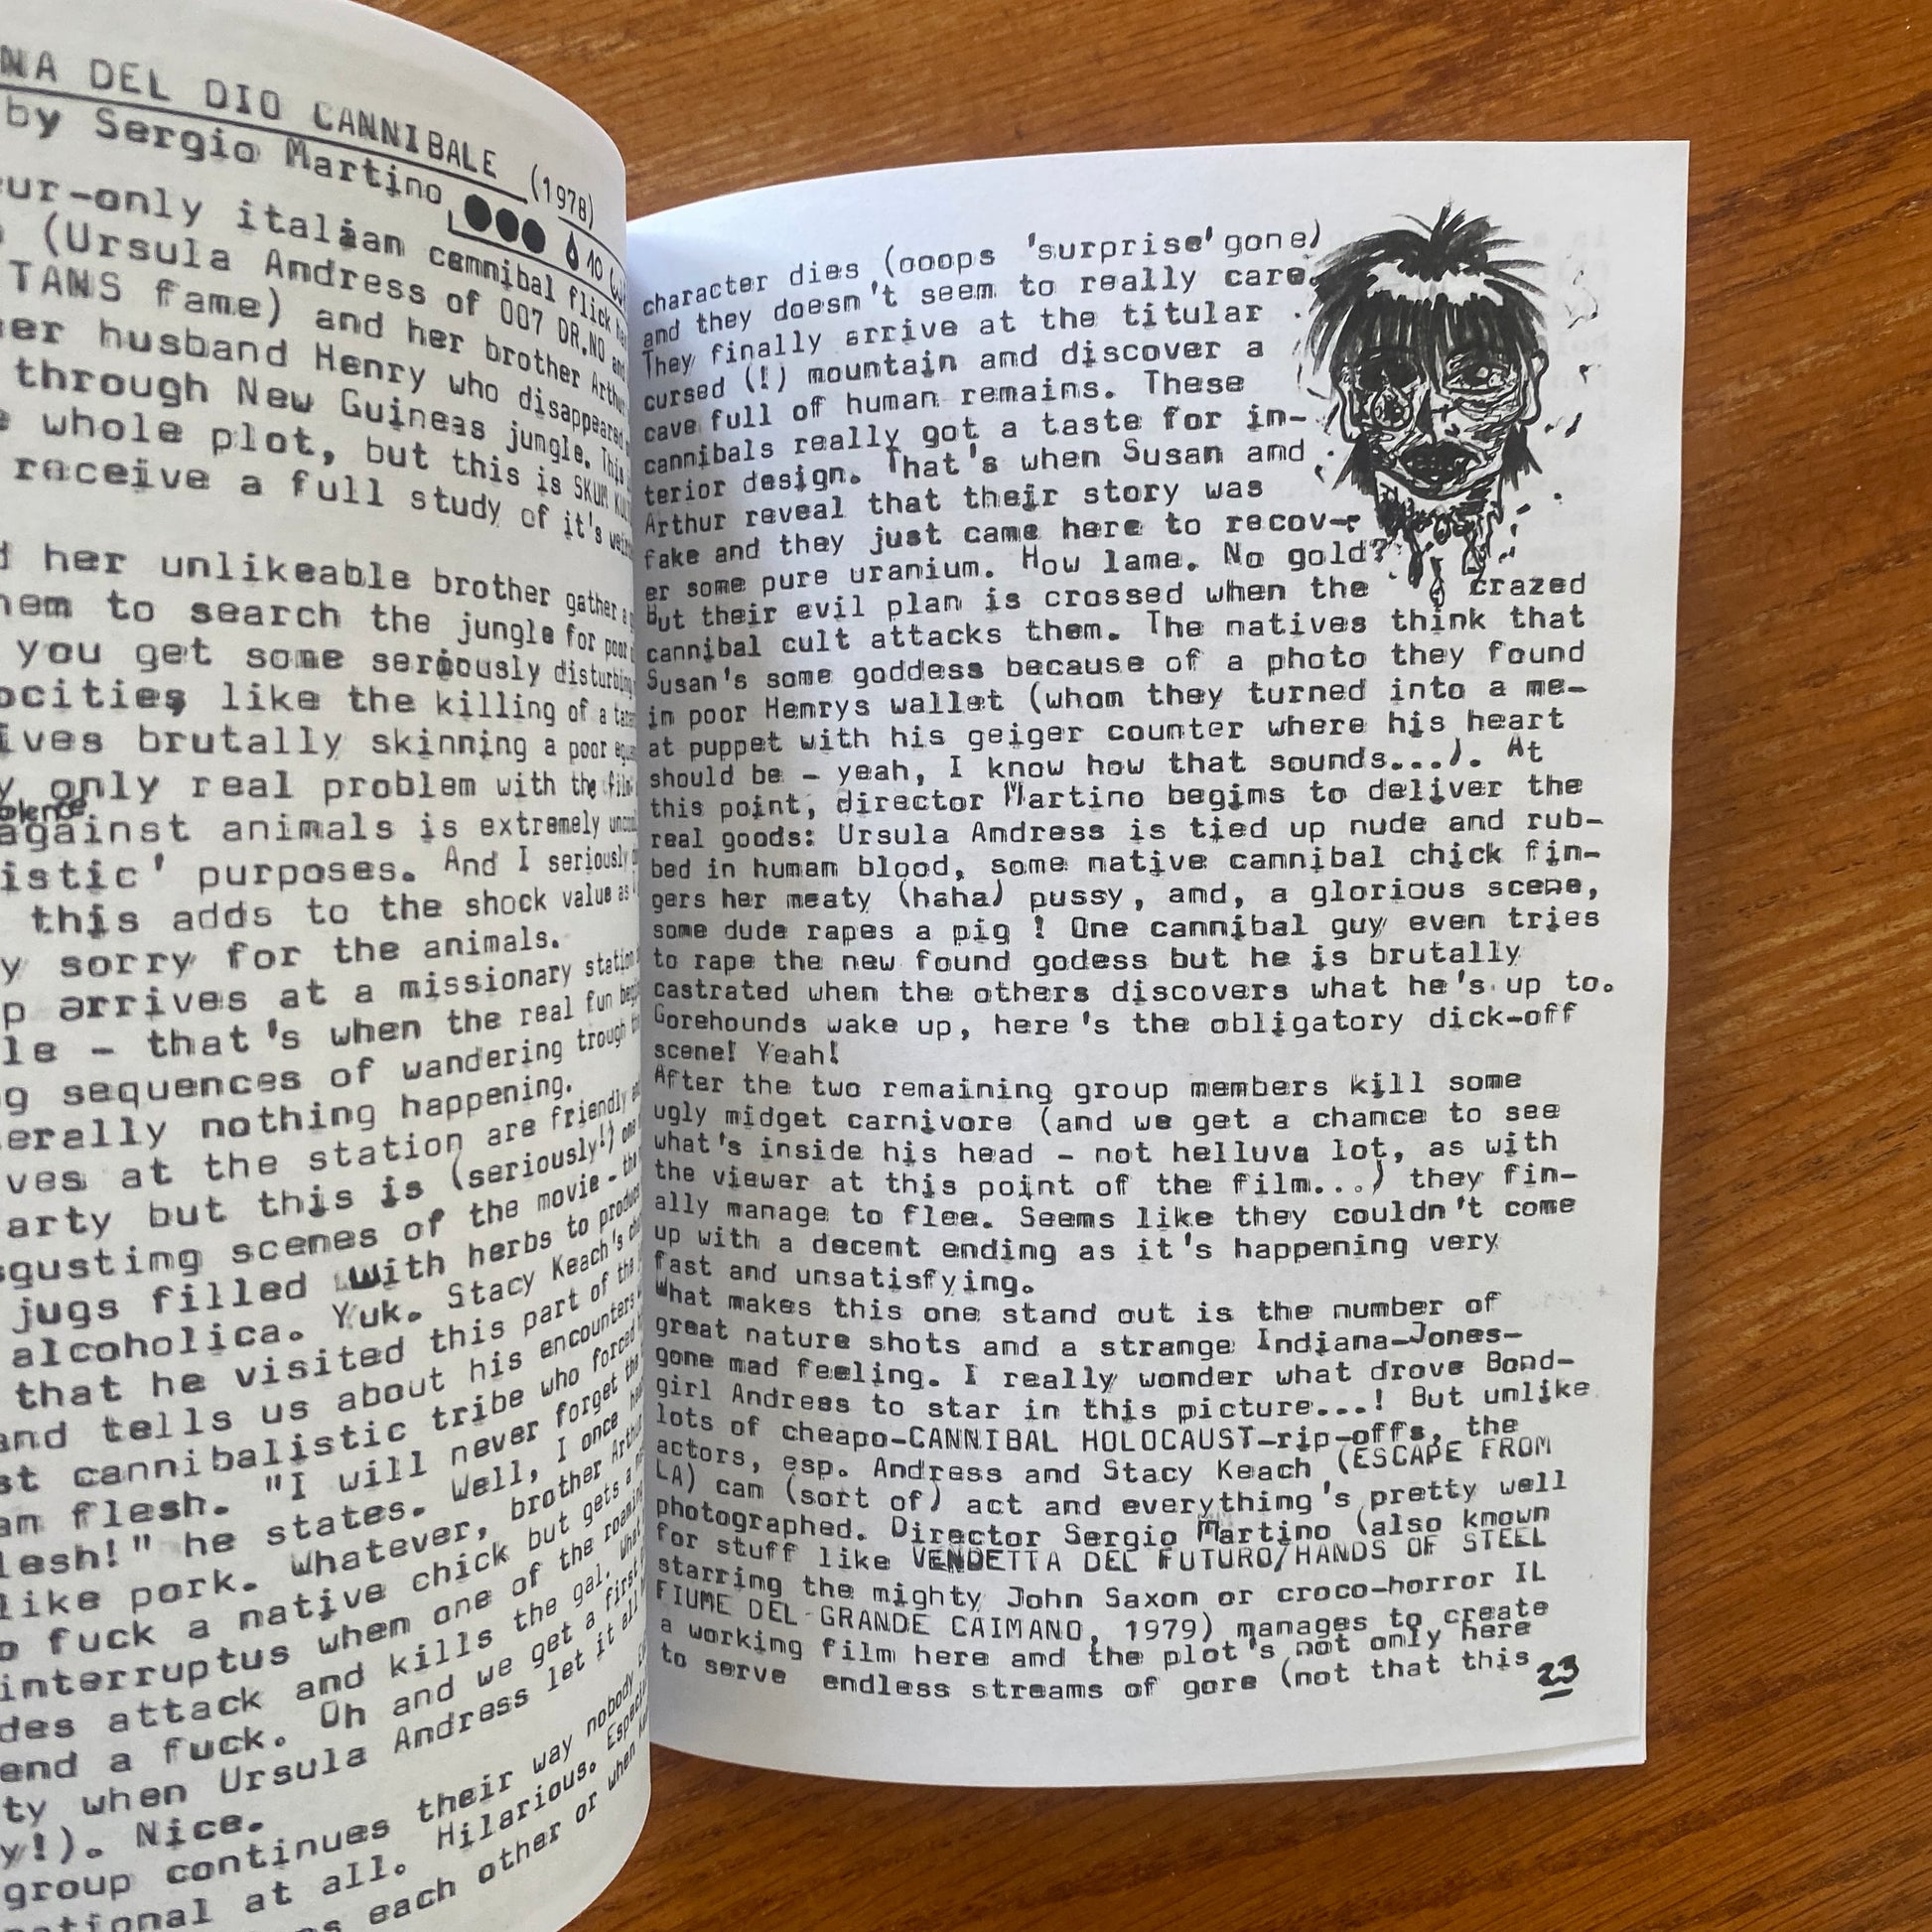 NA DEL DIO CANNIBALE (1978)
by Sergio Martino
ur-only italian cannibal flick
(Ursula Andress of 007 DR.NO and
TANS fame) and her brother Arthur
er husband Henry who disappeared
through New Guineas jungle. This
whole plot, but this is SKUM
receive a full study of it's
her unlikeable brother gather a
hem to search the jungle for poor
you get some seriously disturbing
ocities like the killing of a
ives brutally skinning a poor
y only real problem with the film
olence
against animals is extremely
istic' purposes. And I seriously
this adds to the shock value as
y sorry for the animals.
p arrives at a missionary station
le - that's when the real fun
g sequences of wandering trough
erally nothing happening.
ves at the station are friendly
arty but this is (seriously!) one
sgusting scenes of the movie - the
jugs filled with herbs to produce
alcoholica. Yuk. Stacy Keach's
that he visited this part of the
and tells us about his encounters
st cannibalistic tribe who forced
an flesh. "I will never forget the
lesh!" he states. Well, I once
like pork. Whatever, brother Arthur
o fuck a native chick but gets a
interruptus when one of the roaming
des attack and kills the gal. What
end a fuck. Oh and we get a first
ty when Ursula Andress let it all
y!). Nice.
group continues their way nobody
ational at all. Hilarious.
each other or when
character dies (ooops 'surprise' gone)
and they doesn't seem to really care.
They finally arrive at the titular
cursed (!) mountain and discover a
cave full of human remains. These
cannibals really got a taste for in-
terior design. That's when Susan and
Arthur reveal that their story was
fake and they just came here to recov-
er some pure uranium. How lame. No gold?
But their evil plan is crossed when the crazed
cannibal cult attacks them. The natives think that
Susan's some goddess because of a photo they found
in poor Henrys wallet (whom they turned into a me-
at puppet with his geiger counter where his heart
should be - yeah, I know how that sounds...). At
this point, director Martino begins to deliver the
real goods: Ursula Andress is tied up nude and rub-
bed in human blood, some native cannibal chick fin-
gers her meaty (haha) pussy, and, a glorious scene,
some dude rapes a pig ! One cannibal guy even tries
to rape the new found godess but he is brutally
castrated when the others discovers what he's up to.
Gorehounds wake up, here's the obligatory dick-off
scene! Yeah!
After the two remaining group members kill some
ugly midget carnivore (and we get a chance to see
what's inside his head - not helluva lot, as with
the viewer at this point of the film...) they fin-
ally manage to flee. Seems like they couldn't come
up with a decent ending as it's happening very
fast and unsatisfying.
What makes this one stand out is the number of
great nature shots and a strange Indiana-Jones-
gone mad feeling. I really wonder what drove Bond-
girl Andress to star in this picture...! But unlike
lots of cheapo-CANNIBAL HOLOCAUST-rip-offs, the
actors, esp. Andress and Stacy Keach (ESCAPE FROM
LA) can (sort of) act and everything's pretty well
photographed. Director Sergio Martino (also known
for stuff like VENDETTA DEL FUTURO/HANDS OF STEEL
starring the mighty John Saxon or croco-horror IL
FIUME DEL GRANDE CAIMANO, 1979) manages to create
a working film here and the plot's not only here
to serve endless streams of gore (not that this
23